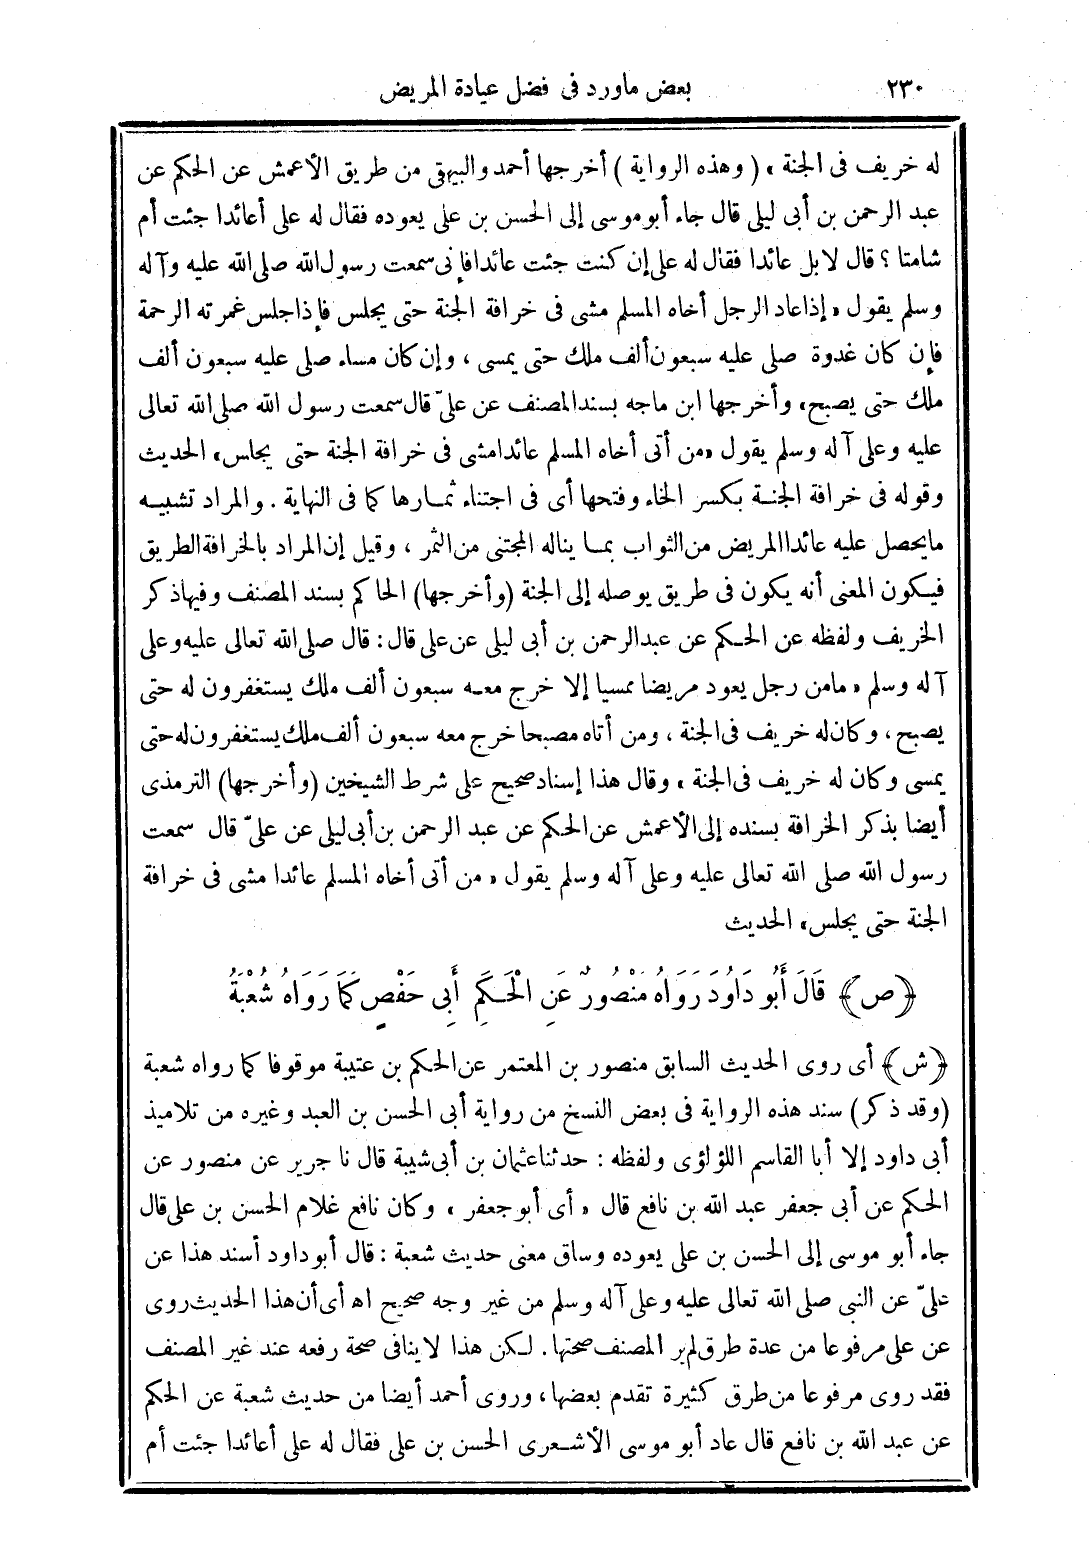 ٢٣٠ بعض ماورد فى فضل عيادة المريض
له خريف فى الجنة » ( وهذه الرواية ) أخرجها أحمد والبيهقى من طريق الأعمش عن الحكم عن
عبد الرحمن بن أبى ليلى قال جاء أبوموسى إلى الحسن بن على يعوده فقال له على أعائدا جئت أم
شامتا ؟ قال لا بل عائدا فقال له على إن كنت جئت عائدا فإنى سمعت رسول الله صلى الله عليه وآله
وسلم يقول « إذا عاد الرجل أخاه المسلم مشى فى خرافة الجنة حتى يجلس فإذا جلس غمرته الرحمة
فإن كان غدوة صلى عليه سبعون ألف ملك حتى يمسى ، وإن كان مساء صلى عليه سبعون ألف
ملك حتى يصبح» وأخرجها ابن ماجه بسند المصنف عن علىّ قال سمعت رسول الله صلى الله تعالى
عليه وعلى آله وسلم يقول «من أتى أخاه المسلم عائدا مشى فى خرافة الجنة حتى يجلس» الحديث
وقوله فى خرافة الجنة بكسر الخاء وفتحها أى فى اجتناء ثمارها كما فى النهاية . والمراد تشبيه
مايحصل عليه عائد المريض من الثواب بما يناله المجتنى من الثمر ، وقيل إن المراد بالخرافة الطريق
فيكون المعنى أنه يكون فى طريق يوصله إلى الجنة (وأخرجها) الحاكم بسند المصنف وفيها ذكر
الخريف ولفظه عن الحكم عن عبد الرحمن بن أبى ليلى عن على قال : قال صلى الله تعالى عليه وعلى
آله وسلم « مامن رجل يعود مريضا ممسيا إلا خرج معه سبعون ألف ملك يستغفرون له حتى
يصبح ، وكان له خريف فى الجنة ، ومن أتاه مصبحا خرج معه سبعون ألف ملك يستغفرون له حتى
يمسى وكان له خريف فى الجنة » وقال هذا إسناد صحيح على شرط الشيخين (وأخرجها) الترمذى
أيضا بذكر الخرافة بسنده إلى الأعمش عن الحكم عن عبد الرحمن بن أبى ليلى عن علىّ قال سمعت
رسول الله صلى الله تعالى عليه وعلى آله وسلم يقول « من أتى أخاه المسلم عائدا مشى فى خرافة
الجنة حتى يجلس» الحديث
﴿ص﴾ قَالَ أَبُو دَاوُدَ رَوَاهُ مَنْصُورٌ عَنِ الْحَكَمِ أَبِى حَفْصٍ كَمَا رَوَاهُ شُعْبَةُ
﴿ش﴾ أى روى الحديث السابق منصور بن المعتمر عن الحكم بن عتيبة موقوفا كما رواه شعبة
(وقد ذكر) سند هذه الرواية فى بعض النسخ من رواية أبى الحسن بن العبد وغيره من تلاميذ
أبى داود إلا أبا القاسم اللؤلؤى ولفظه : حدثنا عثمان بن أبى شيبة قال نا جرير عن منصور عن
الحكم عن أبى جعفر عبد الله بن نافع قال « أى أبو جعفر » وكان نافع غلام الحسن بن على قال
جاء أبو موسى إلى الحسن بن على يعوده وساق معنى حديث شعبة : قال أبو داود أسند هذا عن
علىّ عن النبى صلى الله تعالى عليه وعلى آله وسلم من غير وجه صحيح اهـ أى أن هذا الحديث روى
عن على مرفوعا من عدة طرق لم ير المصنف صحتها. لكن هذا لاينافى صحة رفعه عند غير المصنف
فقد روى مرفوعا من طرق كثيرة تقدم بعضها، وروى أحمد أيضا من حديث شعبة عن الحكم
عن عبد الله بن نافع قال عاد أبو موسى الأشعرى الحسن بن على فقال له على أعائدا جئت أم